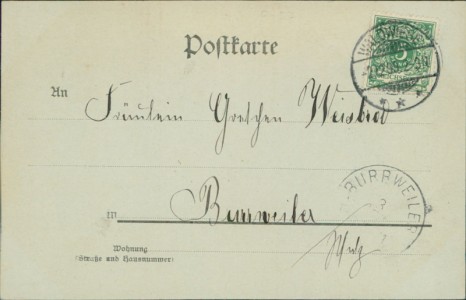 Postkarte
An Fräulein Gretchen Weisbrod
in Burrweiler
Pfalz
Wohnung
(Straße und Hausnummer)
BURRWEILER
5